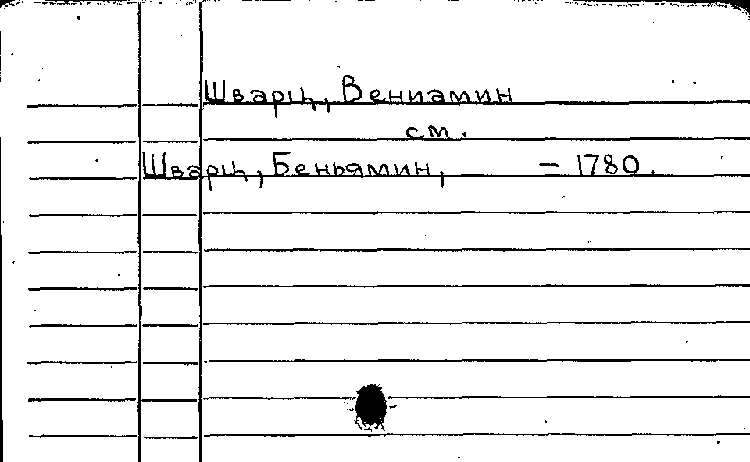 Шварц, Вениамин
см.
Шварц, Беньямин, – 1780.